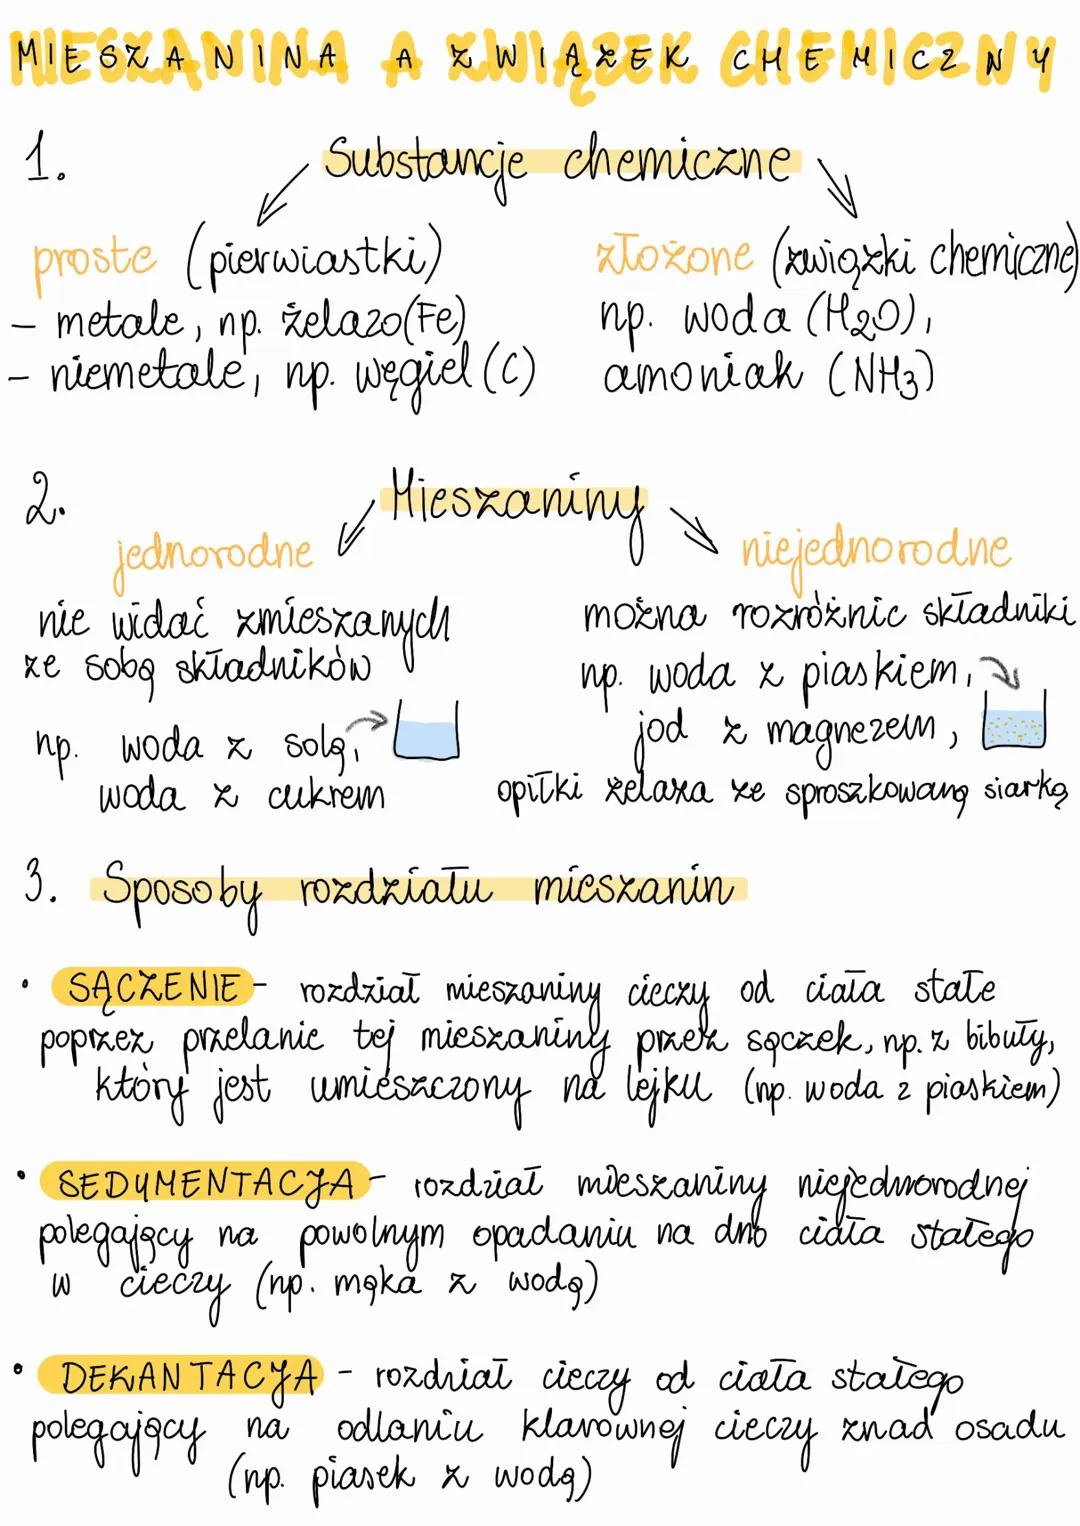 MIESZANINA A ZWIĄZEK CHEMICZNY
1. Substancje chemiczne
proste (pierwiastki)
- metale, np. żelazo (Fe)
- niemetale, np. węgiel (C)
złożone (związki chemiczne)
np. woda (H2O),
amoniak (NH3)
2. Mieszaniny
jednorodne
nie widać zmieszanych
ze sobą składników
np. woda z solą,
woda z cukrem
niejednorodne
można rozróżnic składniki
np. woda z piaskiem,
jod z magnezem,
opiłki żelaza ze sproszkowaną siarką
3. Sposoby rozdziału mieszanin
• SĄCZENIE - rozdział mieszaniny cieczy od ciała stałe
poprzez przelanie tej mieszaniny przez sączek, np. z bibuły,
który jest umieszczony na lejku (np. woda z piaskiem)
• SEDYMENTACJA - rozdział mieszaniny niejednorodnej
polegający na powolnym opadaniu na dno ciała stałego
w cieczy (np. mąka z wodą)
• DEKANTACJA - rozdział cieczy od ciała stałego
polegający na odlaniu klarownej cieczy znad osadu
(np. piasek z wodą)